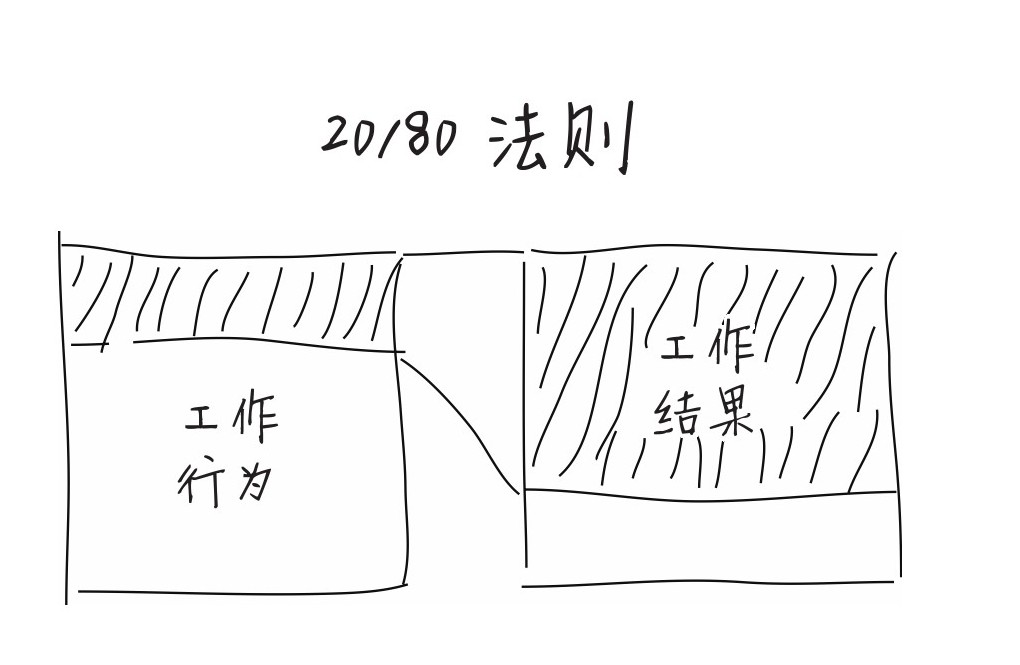 20/80 法则
工作
行为
工作
结果